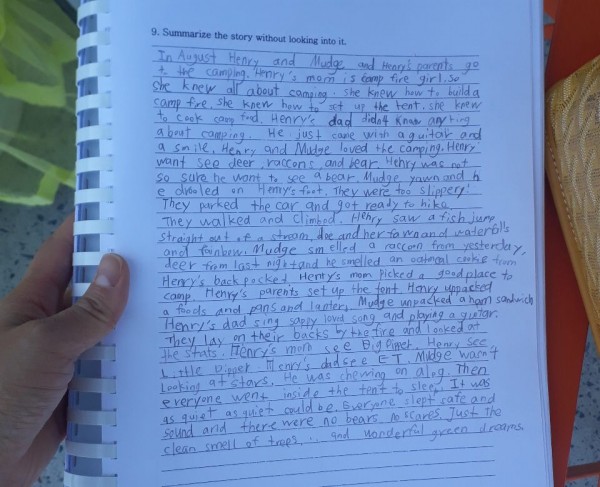 9. Summarize the story without looking into it.
In August Henry and Mudge and Henry's parents go
to the camping. Henry's mom is camp fire girl. So
she knew all about camping. she knew how to build a
camp fire. she knew how to set up the tent. she knew
to cook camp food. Henry's dad didn't know anything
about camping. He just came with a guitar and
a smile. Henry and Mudge loved the camping. Henry
want see deer, raccons, and bear. Henry was not
so sure he want to see a bear. Mudge yawn and h
e drooled on Henry's foot. They were too slippery!
They parked the car and got ready to hike.
They walked and climbed. Henry saw a fish jump
straight out of a stream, doe and her fawn and waterfalls
and rainbow. Mudge smelled a raccoon from yesterday,
deer from last night and he smelled an oatmeal cookie from
Henry's back pocked. Henry's mom picked a good place to
camp. Henry's parents set up the tent. Henry unpacked
a foods and pans and lanter, Mudge unpacked a ham sandwich
Henry's dad sing sappy love song and playing a guitar.
They lay on their backs by the fire and looked at
the stars. Henry's mom see Big Dipper. Henry see
Little Dipper. Henry's dad see E.T. Mudge wasn't
Looking at stars. He was chewing on a log. Then
everyone went inside the tent to sleep. It was
as quiet as quiet could be. Everyone slept safe and
sound and there were no bears, no scares. Just the
clean smell of trees ... and wonderful green dreams.